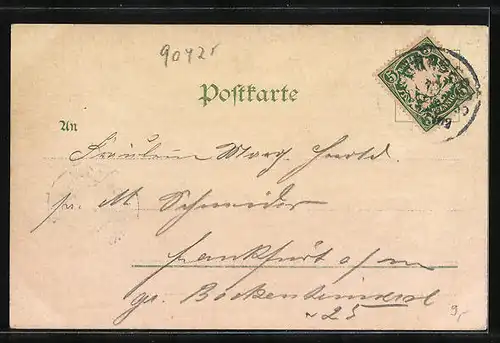 90425
Postkarte
An
Fräulein Marg.
pr. M Schneider
Frankfurt a/m
gr. Bockenheimerst
25
5